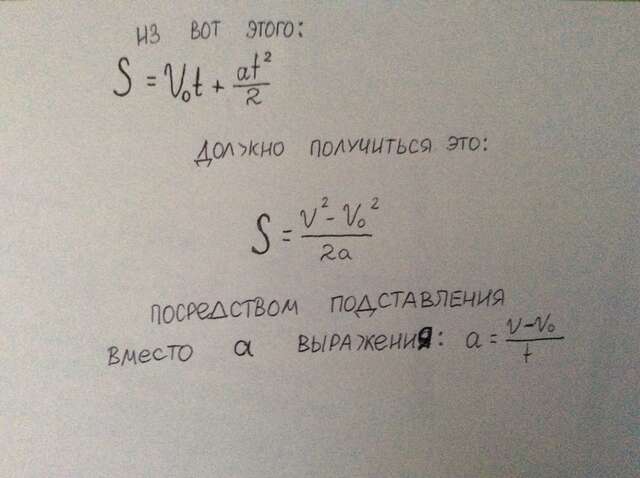 ИЗ ВОТ ЭТОГО:
S = V₀t + at²/2
ДОЛЖНО ПОЛУЧИТЬСЯ ЭТО:
S = V² - V₀²/2a
ПОСРЕДСТВОМ ПОДСТАВЛЕНИЯ
ВМЕСТО a ВЫРАЖЕНИЯ: a = V-V₀/t